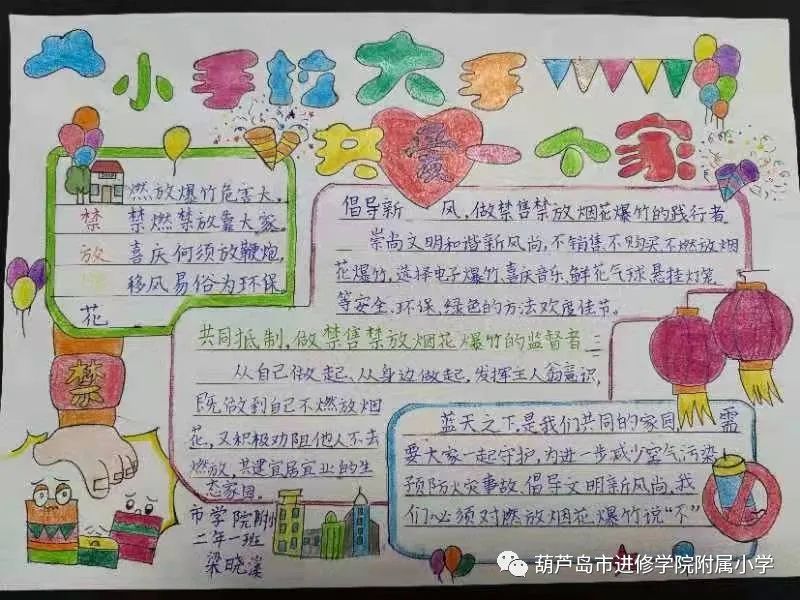 小手拉大手
共爱一个家
燃放爆竹危害大,
禁 禁燃禁放靠大家
放 喜庆何须放鞭炮,
移风易俗为环保。
花
倡导新 风,做禁售禁放烟花爆竹的践行者
崇尚文明和谐新风尚,不销售,不购买不燃放烟
花爆竹,选择电子爆竹、喜庆音乐、鲜花气球、悬挂灯笼
等安全、环保、绿色的方法欢度佳节。
共同抵制,做禁售禁放烟花爆竹的监督者
从自己做起、从身边做起,发挥主人翁意识,
既做到自己不燃放烟
花,又积极劝阻他人不去
燃放,共建宜居宜业的生
态家园。
禁
蓝天之下,是我们共同的家园, 需
要大家一起守护,为进一步减少空气污染
预防火灾事故,倡导文明新风尚,我
们必须对燃放烟花爆竹说“不”
市学院附小
二年一班
梁晓溪
葫芦岛市进修学院附属小学